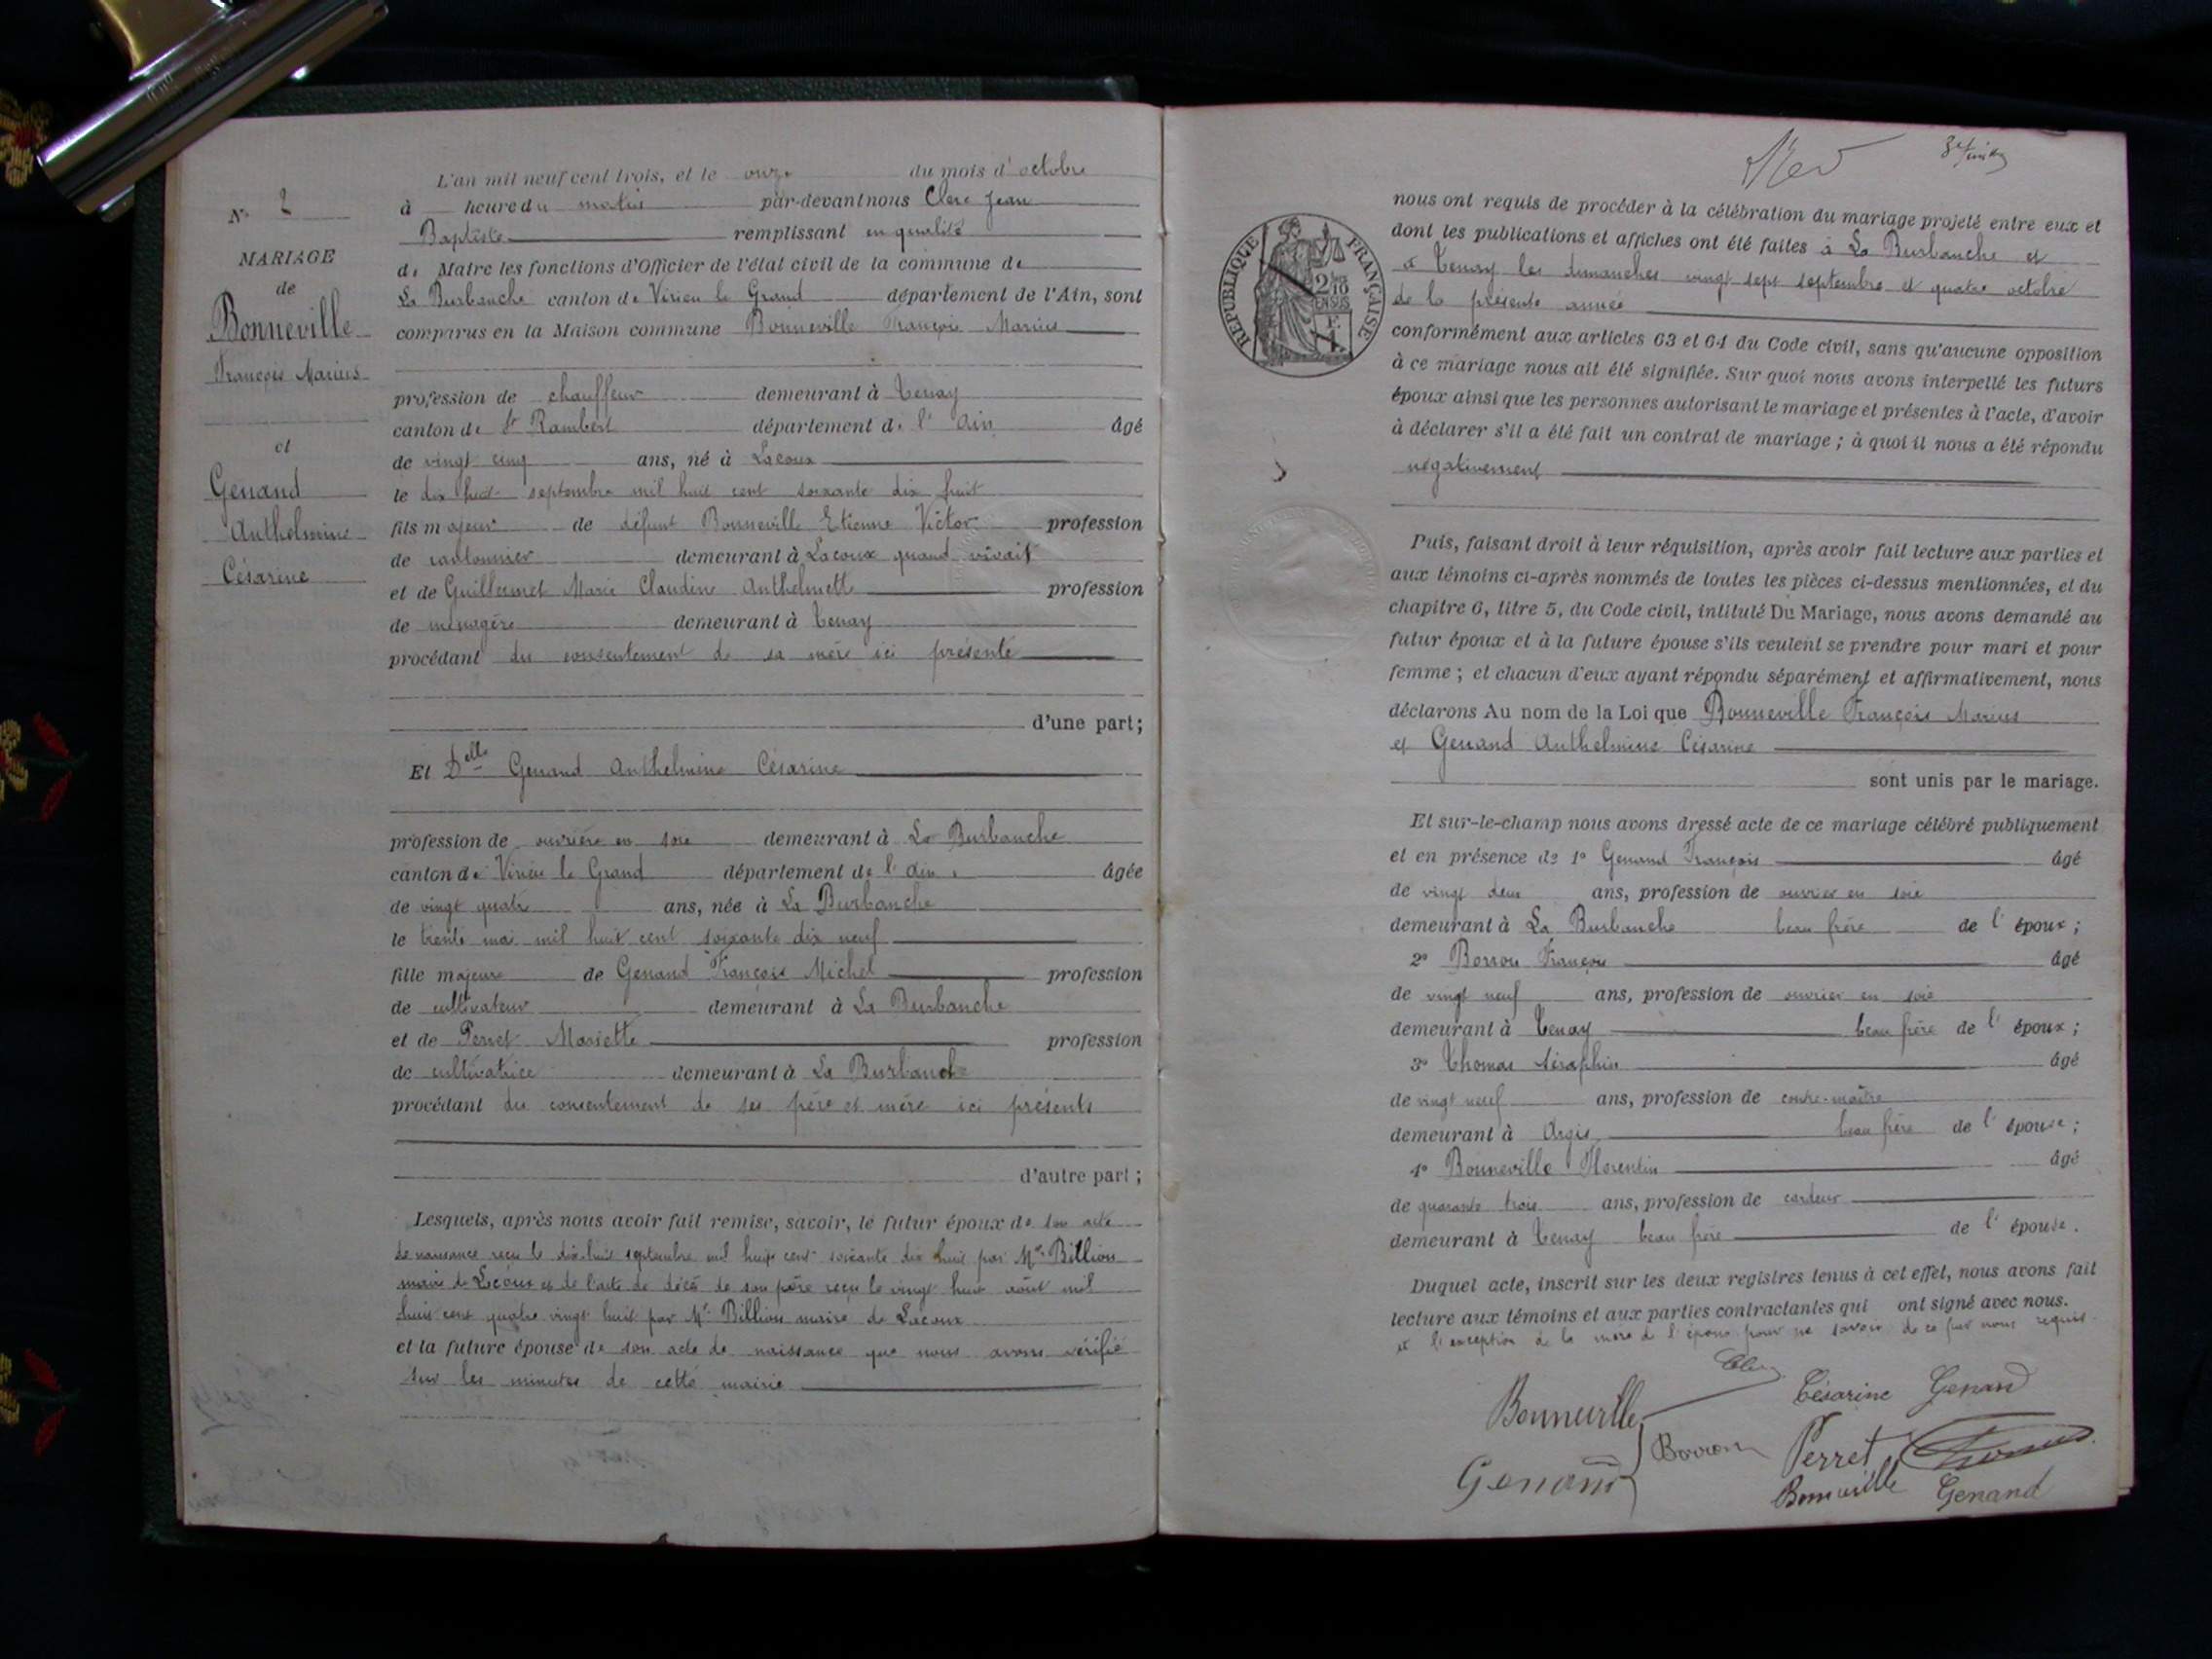 N° 2
MARIAGE
de
Bonneville
François Marius
et
Genand
Anthelmine
Césarine
L'an mil neuf cent trois, et le onze du mois d'octobre
à heure du matin par-devant nous Clerc Jean
Baptiste remplissant en qualité
de Maire les fonctions d'Officier de l'état civil de la commune de
La Burbanche canton de Virieu le Grand département de l'Ain, sont
comparus en la Maison commune Bonneville François Marius
profession de chauffeur demeurant à Tenay
canton de St Rambert département de l'Ain âgé
de vingt cinq ans, né à Lacoux
le dix huit septembre mil huit cent soixante dix huit
fils majeur de défunt Bonneville Etienne Victor profession
de cantonnier demeurant à Lacoux quand vivait
et de Guillermet Marie Claudine Anthelmette profession
de ménagère demeurant à Tenay
procédant du consentement de sa mère ici présente
d'une part;
Et Delle Genand Anthelmine Césarine
profession de ouvrière en soie demeurant à La Burbanche
canton de Virieu le Grand département de l'Ain âgée
de vingt quatre ans, née à La Burbanche
le trente mai mil huit cent soixante dix neuf
fille majeure de Genand François Michel profession
de cultivateur demeurant à La Burbanche
et de Perret Mariette profession
de cultivatrice demeurant à La Burbanche
procédant du consentement de ses père et mère ici présents
d'autre part;
Lesquels, après nous avoir fait remise, savoir, le futur époux de son acte
de naissance reçu le dix-huit septembre mil huit cent soixante dix huit par Mr Billion
maire de Lacoux et de l'acte de décès de son père reçu le vingt huit août mil
huit cent quatre vingt huit par Mr Billion maire de Lacoux
et la future épouse de son acte de naissance que nous avons vérifié
sur les minutes de cette mairie
RÉPUBLIQUE FRANÇAISE
2/10
EN SUS
nous ont requis de procéder à la célébration du mariage projeté entre eux et
dont les publications et affiches ont été faites à La Burbanche et
à Tenay les dimanches vingt sept septembre et quatre octobre
de la présente année
conformément aux articles 63 et 64 du Code civil, sans qu'aucune opposition
à ce mariage nous ait été signifiée. Sur quoi nous avons interpellé les futurs
époux ainsi que les personnes autorisant le mariage et présentes à l'acte, d'avoir
à déclarer s'il a été fait un contrat de mariage ; à quoi il nous a été répondu
négativement
Puis, faisant droit à leur réquisition, après avoir fait lecture aux parties et
aux témoins ci-après nommés de toutes les pièces ci-dessus mentionnées, et du
chapitre 6, titre 5, du Code civil, intitulé Du Mariage, nous avons demandé au
futur époux et à la future épouse s'ils veulent se prendre pour mari et pour
femme ; et chacun d'eux ayant répondu séparément et affirmativement, nous
déclarons Au nom de la Loi que Bonneville François Marius
et Genand Anthelmine Césarine
sont unis par le mariage.
Et sur-le-champ nous avons dressé acte de ce mariage célébré publiquement
et en présence de 1° Genand François âgé
de vingt deux ans, profession de ouvrier en soie
demeurant à La Burbanche beau frère de l'époux ;
2° Borron François âgé
de vingt neuf ans, profession de ouvrier en soie
demeurant à Tenay beau frère de l'époux ;
3° Thomas Séraphin âgé
de vingt neuf ans, profession de contre-maître
demeurant à Argis beau frère de l'épouse ;
4° Bonneville Florentin âgé
de quarante trois ans, profession de cardeur
demeurant à Tenay beau frère de l'épouse.
Duquel acte, inscrit sur les deux registres tenus à cet effet, nous avons fait
lecture aux témoins et aux parties contractantes qui ont signé avec nous.
à l'exception de la mère de l'époux pour ne savoir de ce fait nous requis
Bonneville
Clerc
Césarine Genand
Genand
Borron
Perret
Thomas
Bonneville
Genand